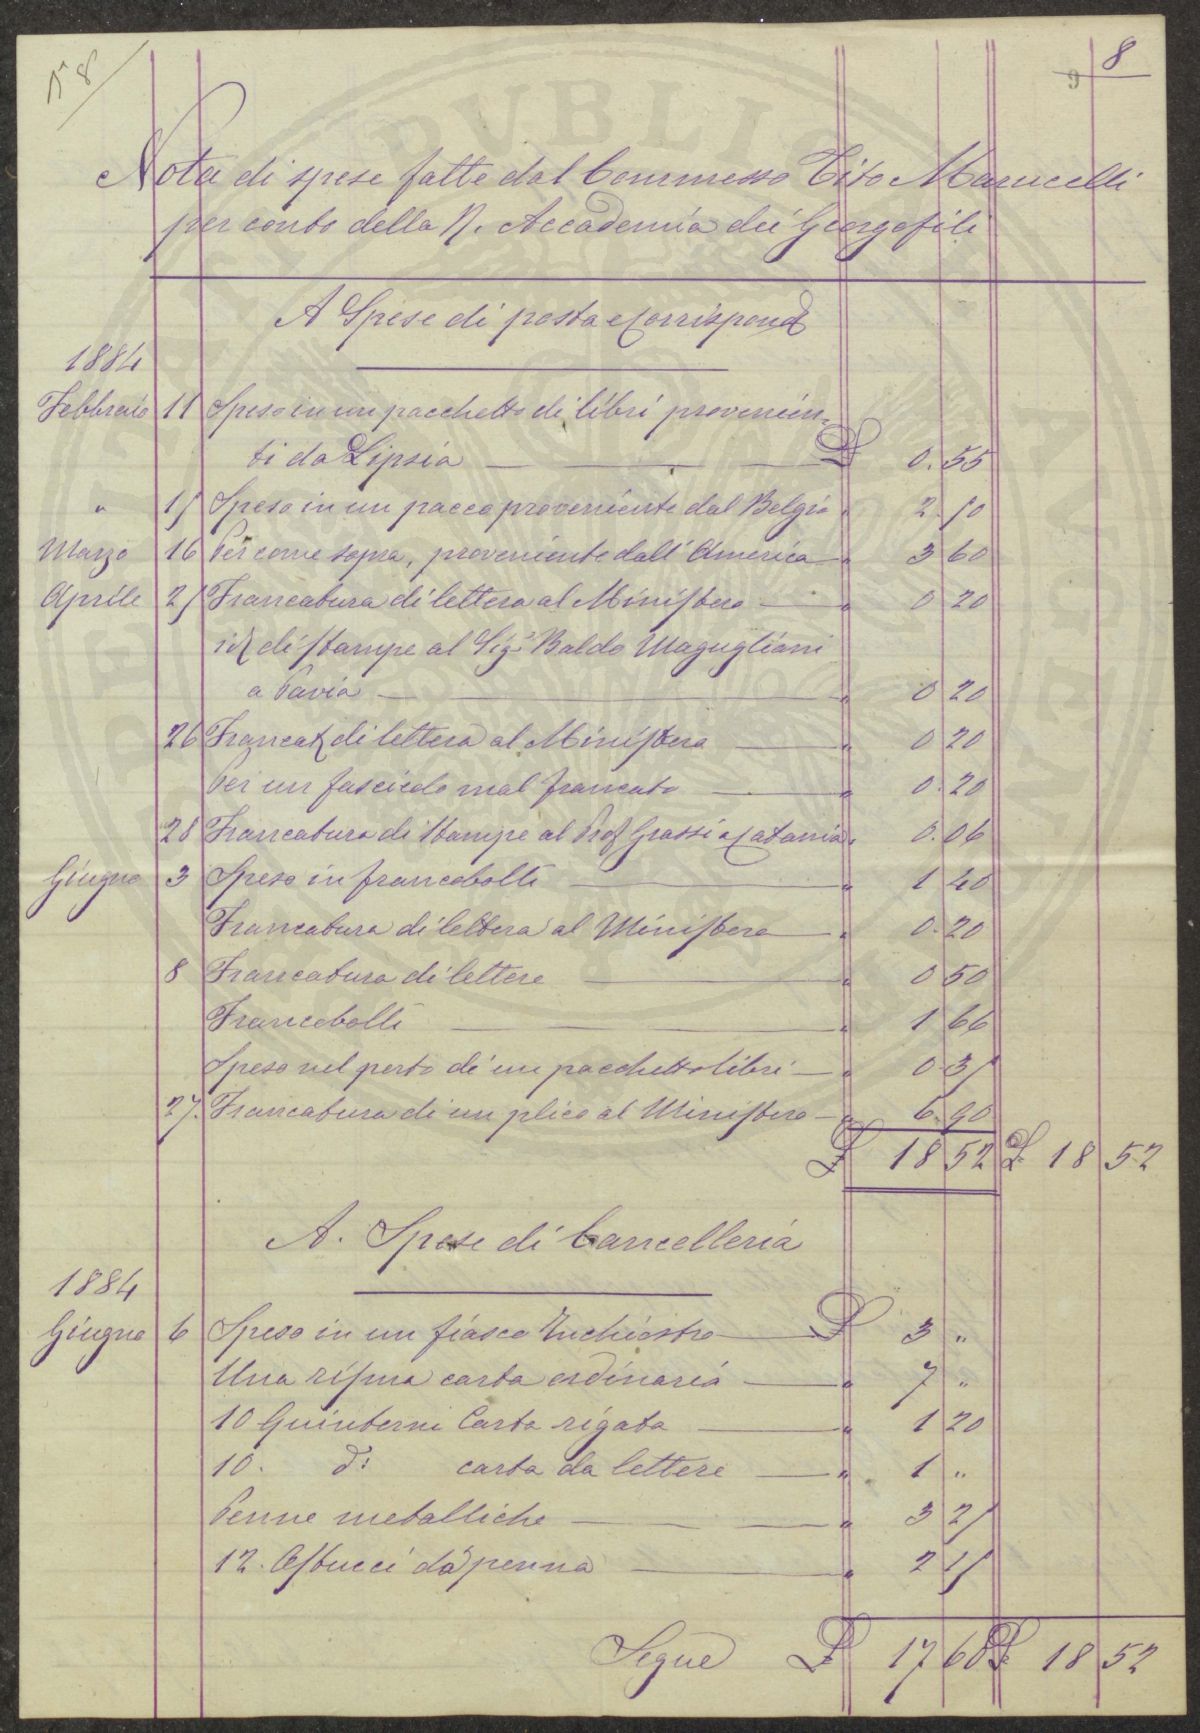 N° 8
9 8
Nota di spese fatte dal Commesso Tito Marucelli
per conto della R. Accademia dei Georgofili
A Spese di posta e Corrispond
1884
Febbraio 11 Speso in un pacchetto di libri provenien-
ti da Lipsia — £ 0.55
" 15 Speso in un pacco proveniente dal Belgio " 2.50
Marzo 16 Per come sopra, proveniente dall'America " 3 60
Aprile 25 Francatura di lettera al Ministero — " 0 20
id di stampe al Sig.r Baldo Magugliani
a Pavia — " 0 20
26 Francat di lettera al Ministero — " 0 20
Per un fascicolo mal francato — " 0.20
28 Francatura di stampe al Prof Grassi a Catania " 0.06
Giugno 3 Speso in francobolli — " 1 40
Francatura di lettera al Ministero — " 0.20
8 Francatura di lettere — " 0 50
Francobolli — " 1 66
Speso nel porto di un pacchetto libri — " 0.35
27. Francatura di un plico al Ministero — " 6.90
£ 18 52 £ 18 52
A. Spese di Cancelleria
1884
Giugno 6 Speso in un fiasco Inchiostro — £ 3 "
Una risma carta ordinaria — " 7 "
10 Quinterni Carta rigata — " 1 20
10. d: carta da lettere — " 1 "
Penne metalliche — " 3 25
12. Astucci da penna — " 2 15
Segue £ 17 60 £ 18 52